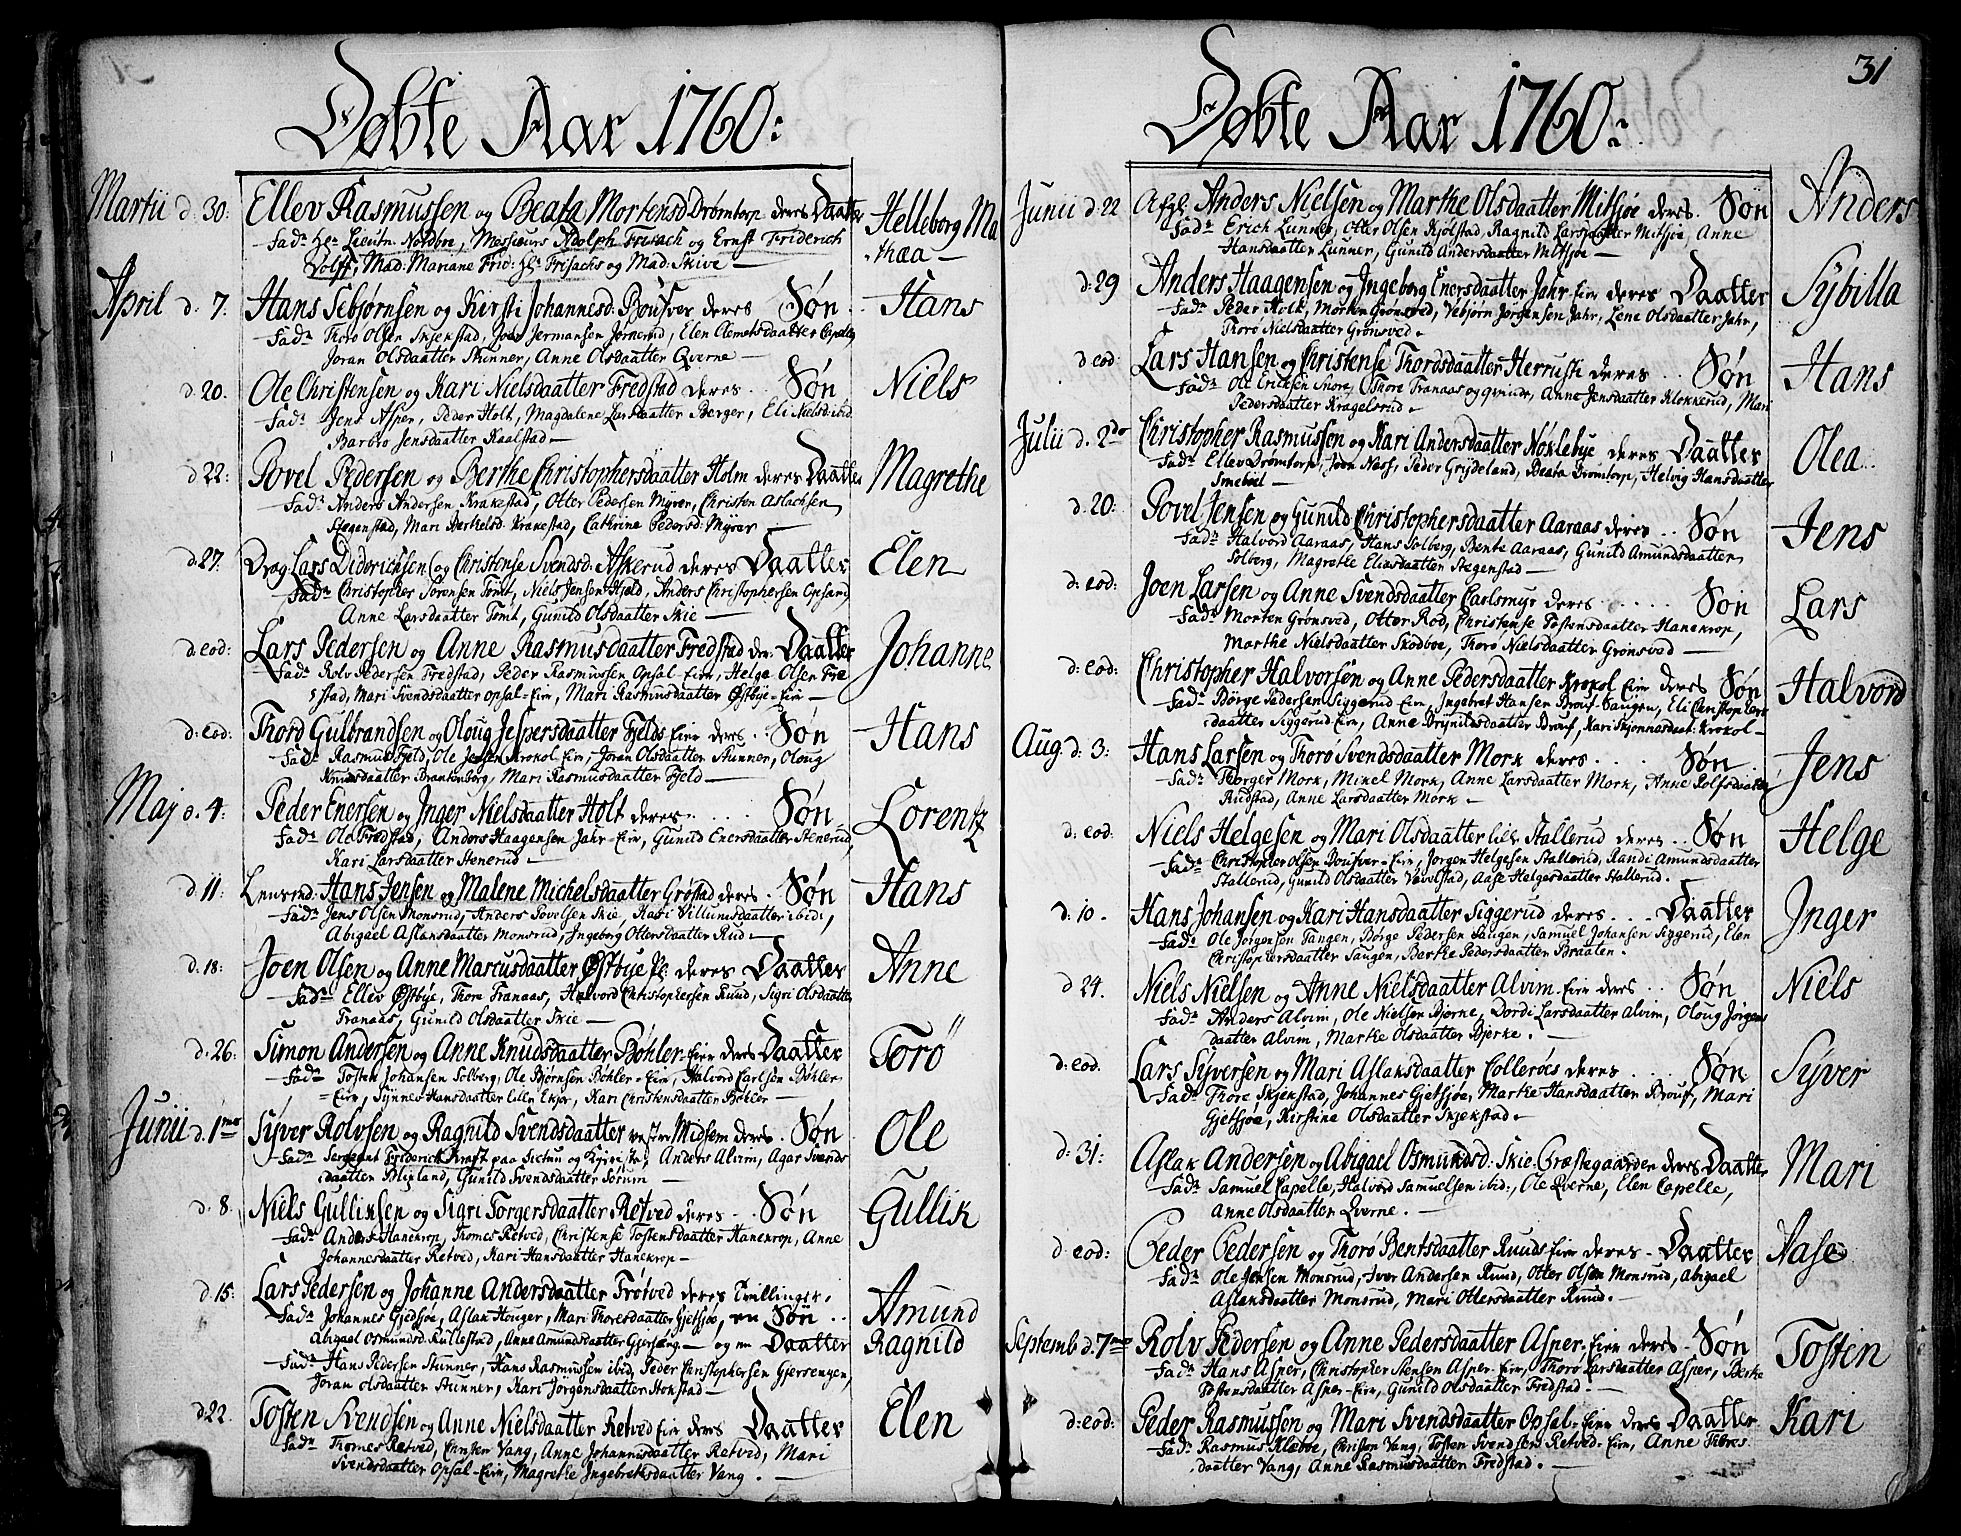 Døbte Aar 1760:
Martii d. 30: Ellev Rasmussen og Beata Mortensd Drømtorp deres Daatter Helleborg Ma
Fadr Hr Lieutn Nordbye, Messieurs Adolph Frisach og Ernst Friderich thæa
Wolff, Mad: Mariane Frid: Hr Frisachs og Mad: Skive
April d. 7: Hans Sebjørnsen og Kirsti Johannesd: Bousver deres Søn Hans
Fadr Thoro Olsen Skjekstad, Joen Jermansen Jørnerud, Elen Clemetsdaatter
Joran Olsdaatter Skinner, Anne Olsdaatter Qverne
d. 20. Ole Christensen og Kari Nielsdaatter Fredstad deres Søn Niels
Fadr Jens Asper, Peder Holt, Magdalene Larsdaatter Berger, Eli Nielsd: ibid
Barbro Jensdaatter Kaalstad
d 22: Povel Pedersen og Berthe Christophersdaatter Holm deres Daatter Magrethe
Fadr Anders Andersen Krakestad, Otter Pedersen Myrer, Christen Aslachsen
Stegenstad, Mari Berthelsd: Krakestad, Cathrine Pedersd: Myrer
d. 27. Drag: Lars Diderichsen og Christense Svendsd: Askerud deres Daatter Elen
Fadr Christopher Sorensen Tomt, Niels Jensen Hield, Anders Christophersen Opsand
Anne Larsdaatter Tomt, Gunild Olsdaatter Skie
d. eod: Lars Pedersen og Anne Rasmusdaatter Fredstad der: Daatter Johanne
Fadr Rolv Pedersen Fredstad, Peder Rasmussen Opsal-Eier, Helge Olsen Fre
stad, Mari Svendsdaatter Opsal-Eier, Mari Rasmusdaatter Østbye-Eier
d: eod: Thord Gulbrandsen og Oloug Jespersdaatter Fjelds Eier deres Søn Hans
Fadr Rasmus Fjeld, Ole Jensen Krokol Eier, Joran Olsdaatter Stunner, Oloug
Knudsdaatter Brankenborg, Mari Rasmusdaatter Fjeld
Maj d. 4: Peder Enersen og Inger Nielsdaatter Holt deres Søn Lorentz
Fadr Ole Fredstad, Anders Haagensen Jahr-Eier, Gunild Enersdaatter Stenerud,
Kari Larsdaatter Stenerud
d 11: Lensmd: Hans Jensen og Malene Michelsdaatter Grøstad deres Søn Hans
Fadr Jens Olsen Monsrud, Anders Povelsen Skie, Kari Villumsdaatter ibid:,
Abigael Aslaksdaatter Monsrud, Ingeborg Ottersdaatter Rud
d. 18: Joen Olsen og Anne Marcusdaatter Østbye deres Daatter Anne
Fadr Ellev Østbye, Thore Franaas, Halvord Christophersen Ruud, Sigri Olsdaatter
Franaas, Gunild Olsdaatter Skie
d. 26: Simon Andersen og Anne Knudsdaatter Bøhler-Eier deres Daatter Torø
Fadr Tosten Johansen Solberg, Ole Bjørnsen Bøhler-Eier, Halvord Carlsen Bøhler
Eier, Synnev Hansdaatter Lillen Ekjer, Kari Christensdaatter Bøhler
Junii d. 1me Syver Rolvsen og Ragnild Svendsdaatter vester Midsem deres Søn Ole
Fadr Sergeant Friderich Kraft, Anders Alvim, Agar Svends
daatter Blixland, Gunild Svendsdaatter Sorum
d. 8. Niels Gulliksen og Sigri Torgersdaatter Retved deres Søn Gullik
Fadr Anders Hanekrop, Thomes Retved, Christense Tostensdaatter Hanekrop, Anne
Johannesdaatter Retved, Kari Hansdaatter Hanekrop
d. 15: Lars Pedersen og Johanne Andersdaatter Frøtved deres Tvillinger,
Fadr Johannes Gjedsjøe, Aslak Houger, Mari Thoresdaatter Gjetsjøe, en Søn Amund
Abigael Osmundsd: Kullestad, Anne Amundsdaatter Gjersøng. og en Daatter Ragnild
Fadr Hans Pedersen Stunner, Hans Rasmussen ibid, Peder Christophersen Gjersengen,
Joran Olsdaatter Stunner, Kari Jørgensdaatter Stokstad
d 22. Tosten Svendsen og Anne Nielsdaatter Retved Eier deres Daatter Elen
Fadr Thomes Retved, Christen Vang, Anne Johannisdaatter Retved, Mari
Svendsdaatter Opsal-Eier, Magrethe Ingebretsdaatter Vang.
31
Døbte Aar 1760:
Junii d. 22 Afgl. Anders Nielsen og Marthe Olsdaatter Mitsjøe deres Søn Anders
Fadr Erich Lunner, Otter Olsen Kjolstad, Ragnild Larsdaatter Mitsjøe, Anne
Hansdaatter Lunner, Gunild Andersdaatter Mitsjøe
d. 29 Anders Haagensen og Ingeborg Enersdaatter Jahr Eier deres Daatter Sybilla
Fadr Peder Holt, Morten Grønsved, Vebjørn Jørgensen Jahr, Lene Olsdaatter Jahr,
Thorø Nielsdaatter Grønsved
d eod: Lars Hansen og Christense Thordsdaatter Herrusti deres Søn Hans
Fadr Ole Eriksen Snore, Thore Franaas og qvinde, Anne Jensdaatter Klokkerud, Mari
Pedersdaatter Kragelsrud
Julii d. 2do Christopher Rasmussen og Kari Andersdaatter Nøklebye deres Daatter Olea
Fadr Ellev Drømtorp, Joen Næss, Peder Grydeland, Beata Drømtorp, Helvig Hansdaatter
Smebøl
d. 20: Povel Jensen og Gunild Christophersdaatter Aaraas deres Søn Jens
Fadr Halvord Aaraas, Hans Solberg, Bente Aaraas, Gunild Amundsdaatter
Solberg, Magrethe Eliasdaatter Stegenstad
d: eod: Joen Larsen og Anne Svendsdaatter Carlsmyr deres Søn Lars
Fadr Morten Grønsved, Otter Rod, Christense Tostensdaatter Hanekrop,
Marthe Nielsdaatter Skodboe, Thorø Nielsdaatter Grønsved
d: eod: Christopher Halvorsen og Anne Pedersdaatter Krokol Eier deres Søn Halvord
Fadr Børge Pedersen Siggerud Eier, Ingebret Hansen Brouf-Taugen, Eli Christophers
daatter Siggerud-Eier, Anne Brynildsdaatter Brouf, Kari Skjønnesdaat: Krokol
Aug d. 3: Hans Larsen og Thorø Svendsdaatter Mork deres Søn Jens
Fadr Thorger Mork, Mikel Mork, Anne Larsdaatter Mork, Anne Rolfsdaatter
Rudstad, Anne Larsdaatter Mork
d: eod: Niels Helgesen og Mari Olsdaatter lille Stallerud deres Søn Helge
Fadr Christopher Olsen Bousver-Eier, Jorgen Helgesen Stallerud, Randi Amundsdaatter
Stallerud, Gunild Olsdaatter Vevelstad, Aase Helgesdaatter Stallerud.
d: 10. Hans Johansen og Kari Hansdaatter Siggerud deres Daatter Inger
Fadr Ole Jørgensen Tangen, Børge Pedersen Taugen, Samuel Johansen Siggerud, Elen
Christophersdaatter Taugen, Berthe Pedersdaatter Braaten.
d 24. Niels Nielsen og Anne Nielsdaatter Alvim Eier deres Søn Niels
Fadr Anders Alvim, Ole Nielsen Bjerke, Dordi Larsdaatter Alvim, Oloug Jørgens
daatter Alvim, Marthe Olsdaatter Bjerke.
d: eod. Lars Syversen og Mari Aslaksdaatter Colleroes deres Søn Syver
Fadr Thore Skjekstad, Johannes Gjetsjøe, Marthe Hansdaatter Brouf, Mari
Gjetsjøe, Kirstine Olsdaatter Skjekstad.
d. 31: Aslak Andersen og Abigael Osmundsd: Skie Græstegaarden deres Daatter Mari
Fadr Samuel Capelle, Halvord Samuelsen ibid:, Ole Qverne, Elen Capelle,
Anne Olsdaatter Qverne.
d eod: Peder Pedersen og Thorø Bentsdaatter Ruuds Eier deres Daatter Aase
Fadr Ole Jensen Monsrud, Iver Andersen Ruud, Otter Olsen Monsrud, Abigael
Aslaksdaatter Monsrud, Mari Ottersdaatter Ruud.
Septemb d. 7me Rolv Pedersen og Anne Pedersdaatter Asper-Eier deres Søn Tosten
Fadr Hans Asper, Christopher Stensen Asper-Eier, Thorø Larsdaatter Asper, Berthe
Tostensdaatter Asper-Eier, Gunild Olsdaatter Fredstad.
d: eod: Peder Rasmussen og Mari Svendsdaatter Opsal-Eier deres Daatter Kari
Fadr Rasmus Klæboe, Christen Vang, Tosten Svendsen Retved-Eier, Anne Thores
daatter Vang, Anne Rasmusdaatter Fredstad.